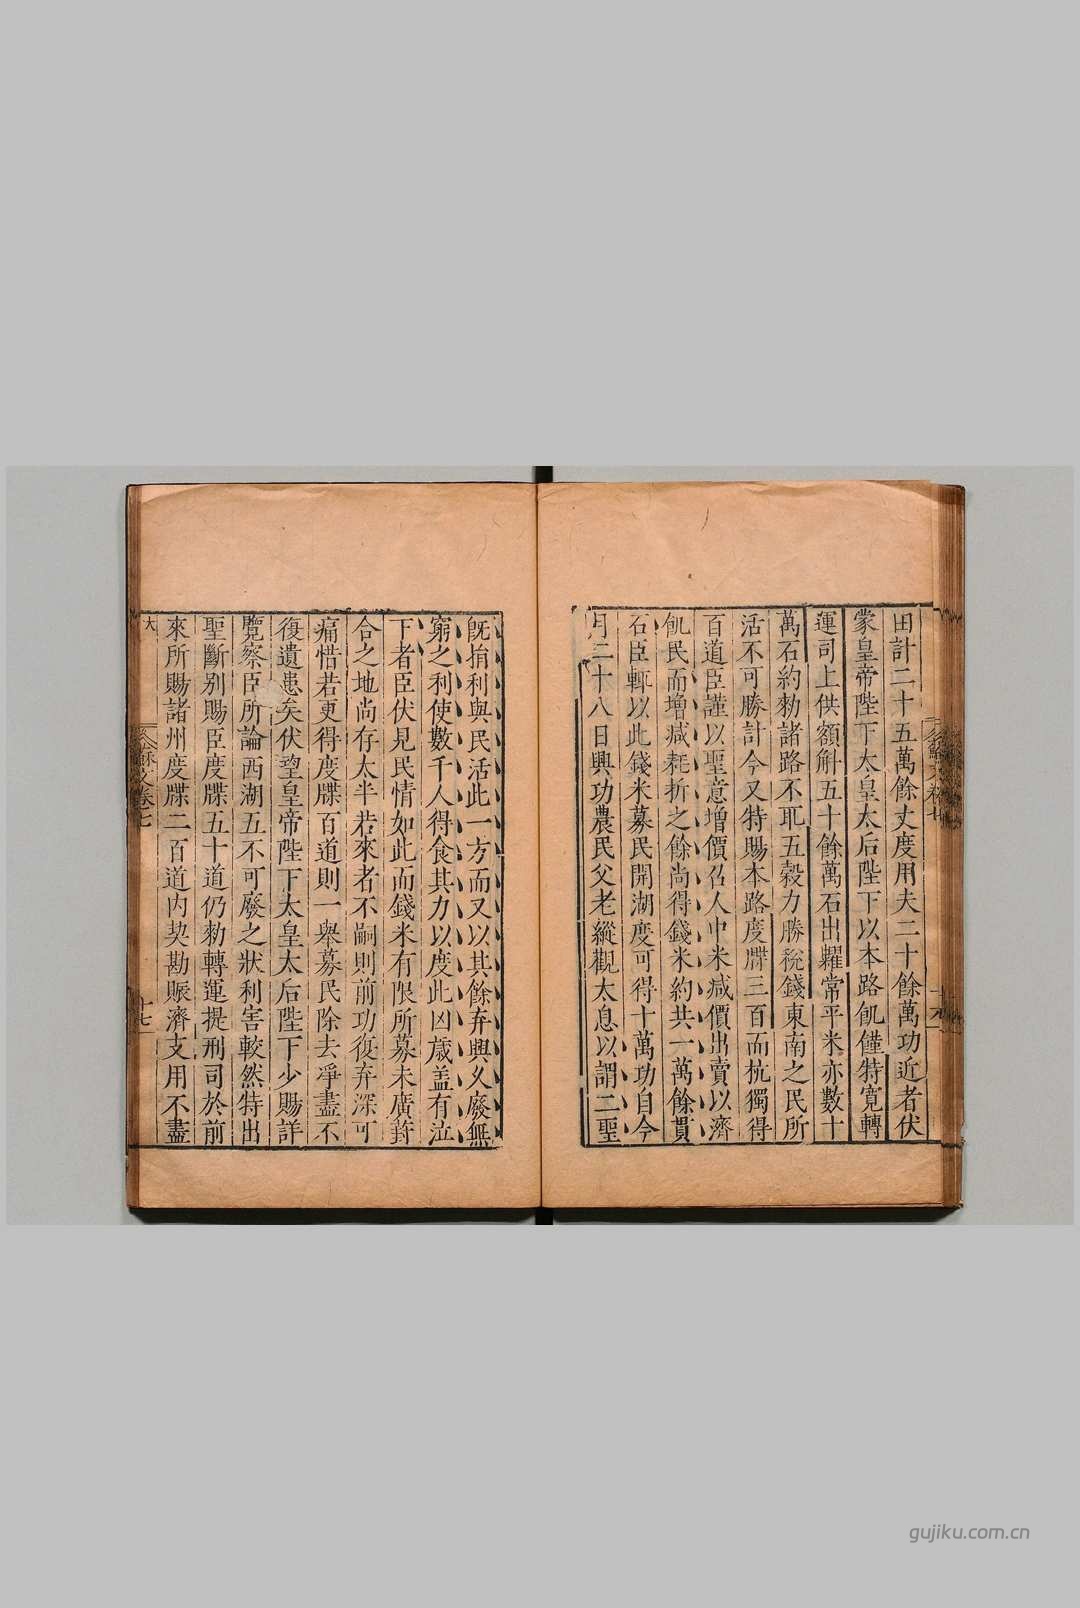 田計二十五萬餘丈度用夫二十餘萬功近者伏
蒙皇帝陛下太皇太后陛下以本路飢饉特寬轉
運司上供額斛五十餘萬石出糶常平米亦數十
萬石約勑諸路不取五穀力勝稅錢東南之民所
活不可勝計今又特賜本路度牒三百而杭獨得
百道臣謹以聖意增價召人中米减價出賣以濟
飢民而增减耗折之餘尚得錢米約共一萬餘貫
石臣輒以此錢米募民開湖度可得十萬功自今
月二十八日興功農民父老縱觀太息以謂二聖
既捐利與民活此一方而又以其餘弃興久廢無
窮之利使數千人得食其力以度此凶歲盖有泣
下者臣伏見民情如此而錢米有限所募未廣葑
合之地尚存太半若來者不嗣則前功復弃深可
痛惜若更得度牒百道則一舉募民除去凈盡不
復遺患矣伏望皇帝陛下太皇太后陛下少賜詳
覽察臣所論西湖五不可廢之狀利害較然特出
聖斷别賜臣度牒五十道仍勑轉運提刑司於前
來所賜諸州度牒二百道内契勘賑濟支用不盡
大
蘇文卷七
十七
gujiku.com.cn